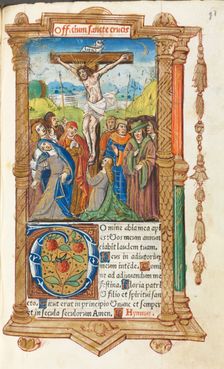 Officium sancte crucis
Domine labia mea ape
ries. Et os meum annun
ciabit laudem tuam.
Deus in adiutorium
meum intēde. Domine
ad adiuvandum me fe
stina. Gloria patri
et filio et spiritui san
cto. Sicut erat in principio et nunc et semper
et in secula seculorum Amen. Hymnus.